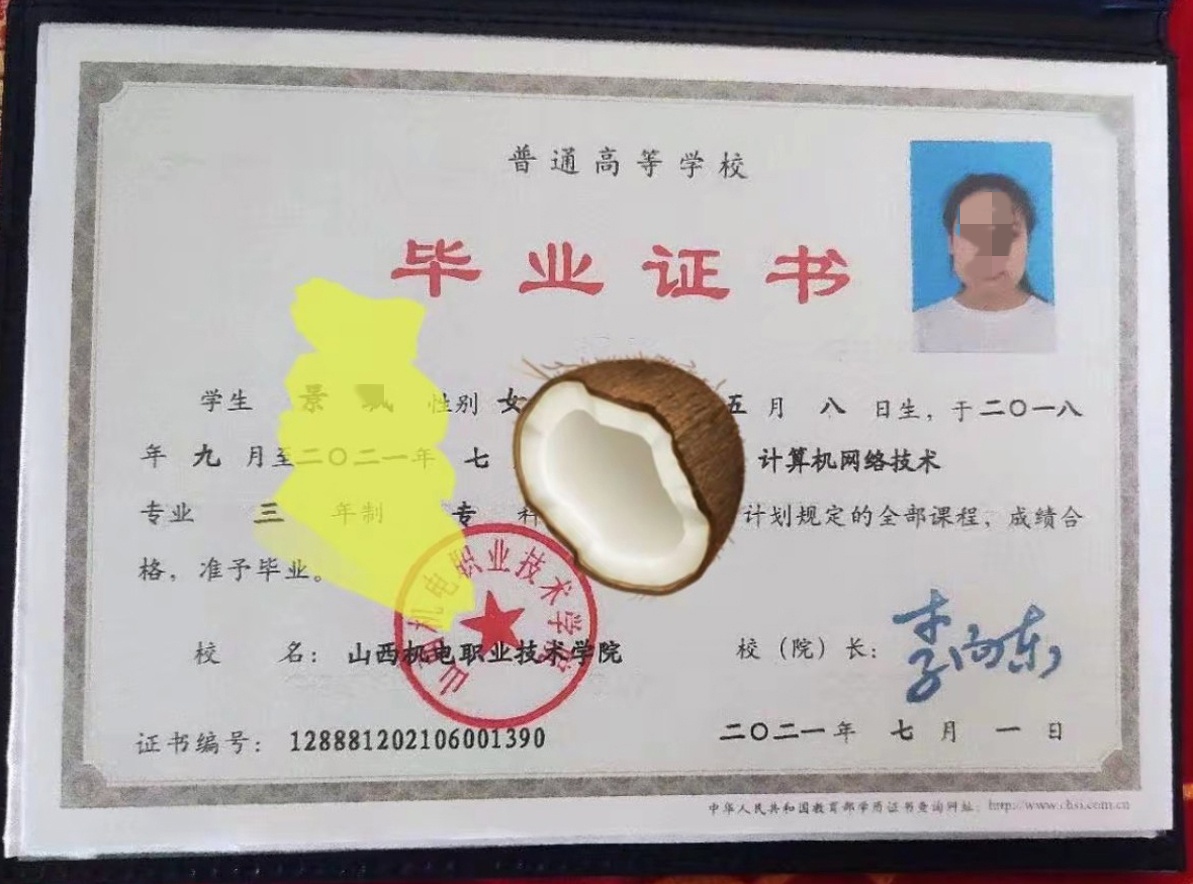 普通高等学校
毕业证书
学生 景 性别 女 五月八日生，于二〇一八
年九月至二〇二一年七 计算机网络技术
专业 三年制 专科 计划规定的全部课程，成绩合
格，准予毕业。
山西机电职业技术学院
校名：山西机电职业技术学院 校（院）长：李向东
证书编号：128881202106001390 二〇二一年七月一日
中华人民共和国教育部学历证书查询网址：http://www.chsi.com.cn